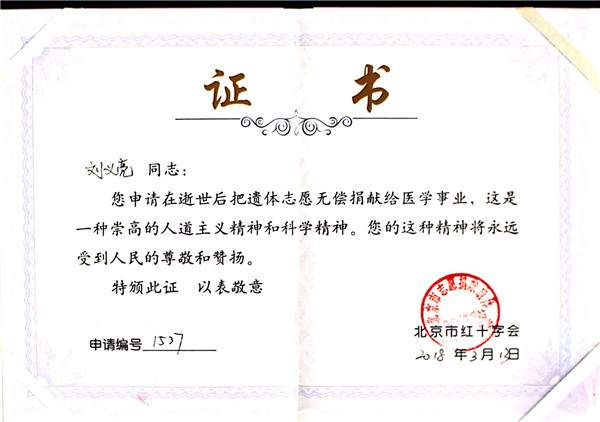 证 书
刘义亮 同志：
您申请在逝世后把遗体志愿无偿捐献给医学事业，这是
一种崇高的人道主义精神和科学精神。您的这种精神将永远
受到人民的尊敬和赞扬。
特颁此证 以表敬意
北京市红十字会
申请编号 1537
2018 年 3 月 日